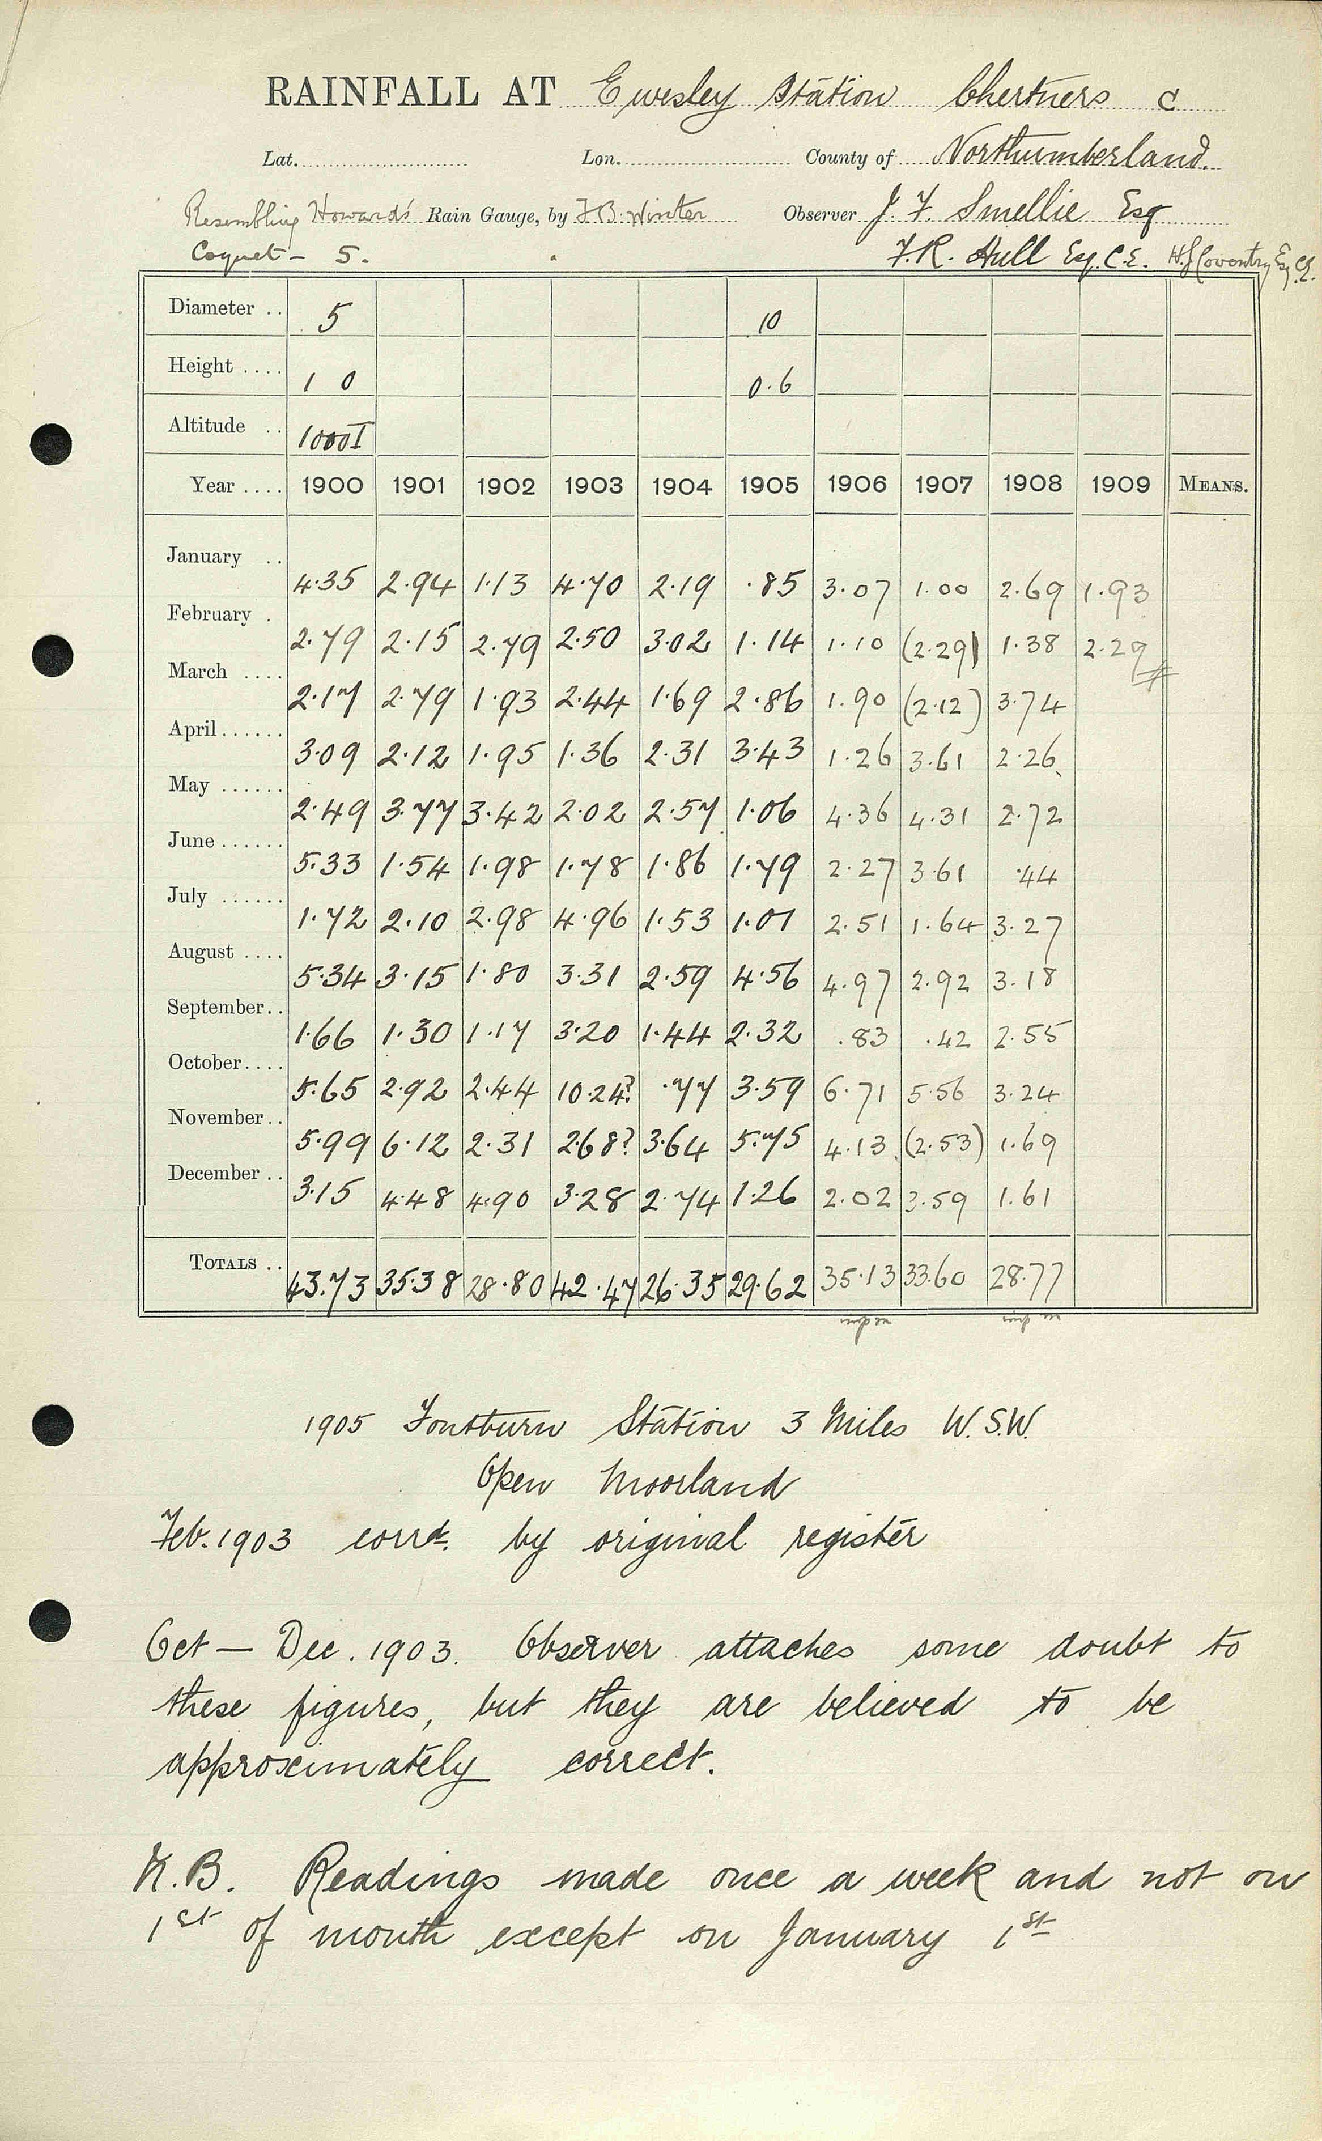 RAINFALL AT Ewesley Station C
Lat. Lon. County of Northumberland.
Resembling Howard's Rain Gauge, by F.B. Winter Observer J. F. Smellie Esq
Coquet - 5. F.R. Hull Esq. C.E. H.J Coventry Esq C.E.
Diameter .. 5 10
Height .... 1 0 0.6
Altitude .. 1000I
Year .... 1900 1901 1902 1903 1904 1905 1906 1907 1908 1909 MEANS.
January .. 4.35 2.94 1.13 4.70 2.19 .85 3.07 1.00 2.69 1.93
February . 2.79 2.15 2.79 2.50 3.02 1.14 1.10 (2.29) 1.38 2.29
March .... 2.17 2.79 1.93 2.44 1.69 2.86 1.90 (2.12) 3.74
April...... 3.09 2.12 1.95 1.36 2.31 3.43 1.26 3.61 2.26
May ...... 2.49 3.77 3.42 2.02 2.57 1.06 4.36 4.31 2.72
June...... 5.33 1.54 1.98 1.78 1.86 1.79 2.27 3.61 .44
July ...... 1.72 2.10 2.98 4.96 1.53 1.01 2.51 1.64 3.27
August .... 5.34 3.15 1.80 3.31 2.59 4.56 4.97 2.92 3.18
September.. 1.66 1.30 1.17 3.20 1.44 2.32 .83 .42 2.55
October.... 5.65 2.92 2.44 10.24? .77 3.59 6.71 5.56 3.24
November.. 5.99 6.12 2.31 2.68? 3.64 5.75 4.13 (2.53) 1.69
December .. 3.15 4.48 4.90 3.28 2.74 1.26 2.02 3.59 1.61
TOTALS .. 43.73 35.38 28.80 42.47 26.35 29.62 35.13 33.60 28.77
1905 Fontburn Station 3 Miles W.S.W.
Open Moorland
Feb. 1903 corrd. by original register
Oct — Dec. 1903. Observer attaches some doubt to
these figures, but they are believed to be
approximately correct.
N.B. Readings made once a week and not on
1st of month except on January 1st